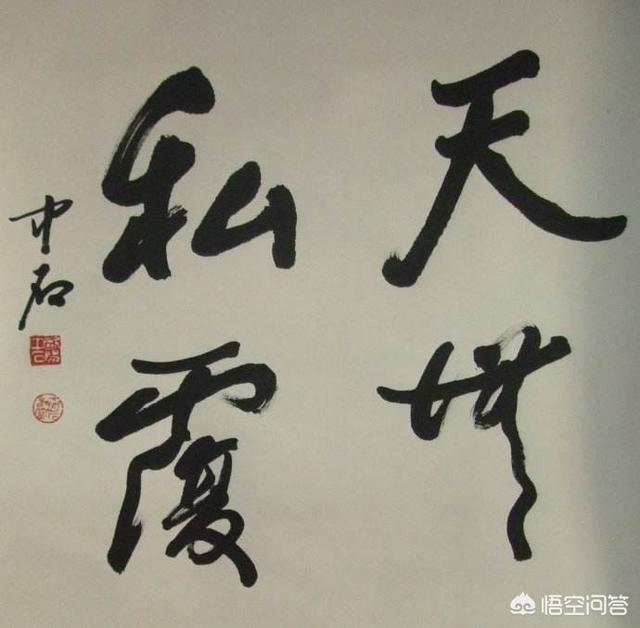 天無
私覆
中石
悟空问答